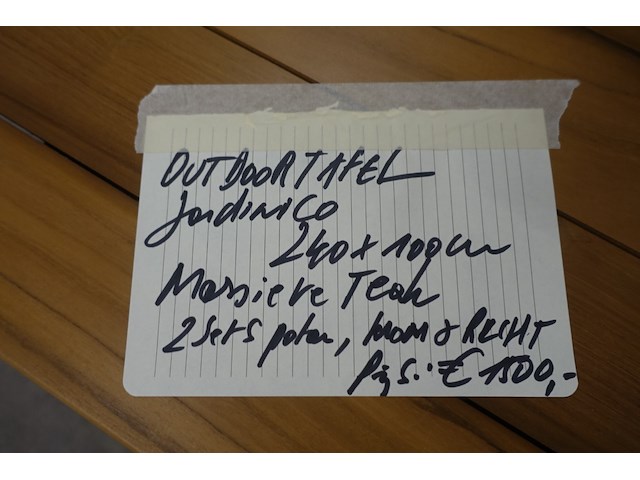 OUTDOOR TAFEL
Jardinico
240 x 100 cm
Massieve Teak
2 sets poten, krom & RECHT
Prijs: € 1500,-